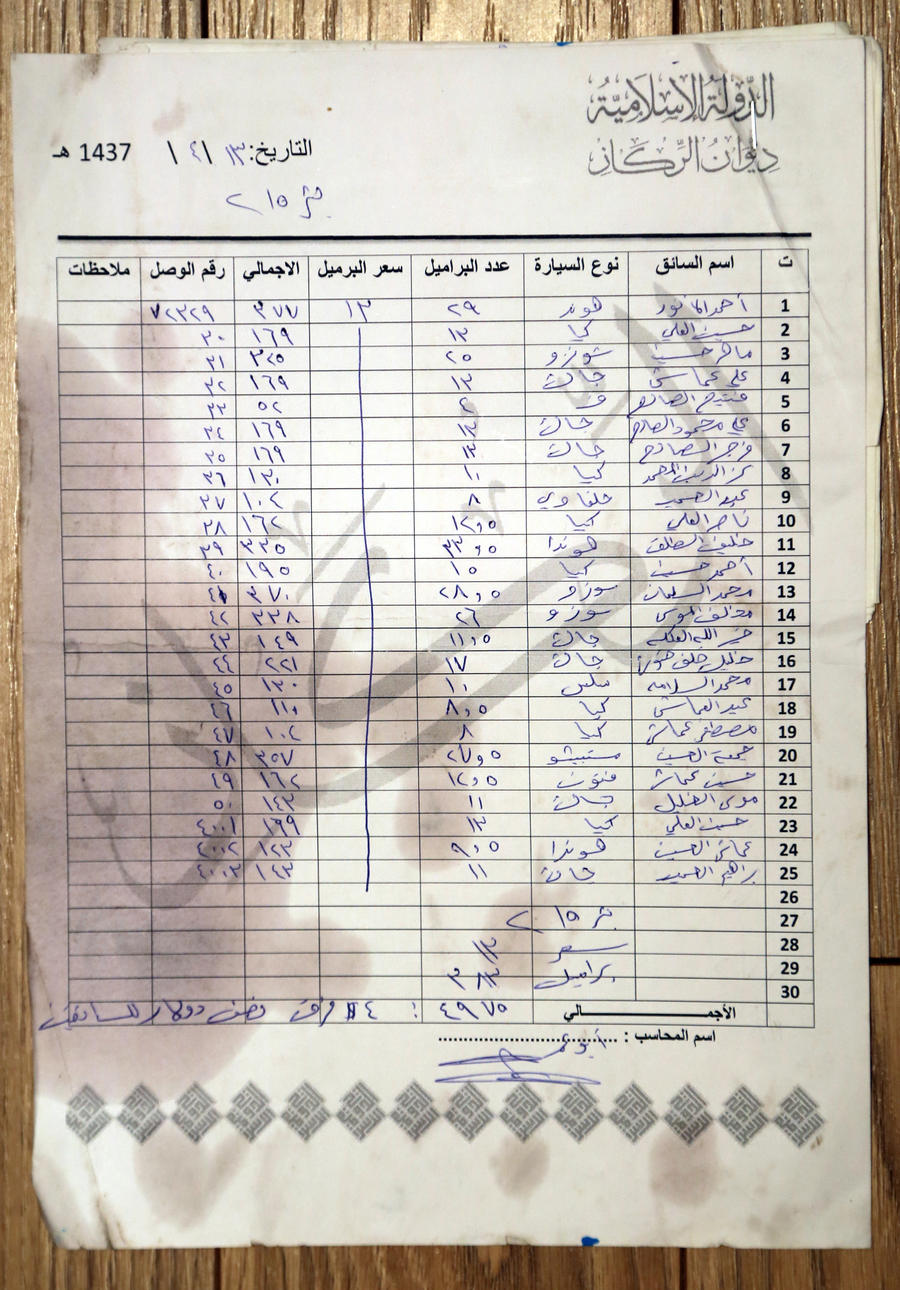 الدولة الإسلامية
ديوان الركاز
التاريخ: ١٣ / ٤ / 1437 هـ
بئر ١٥ ٢
ت اسم السائق نوع السيارة عدد البراميل سعر البرميل الاجمالي رقم الوصل ملاحظات
1 أحمد هوند ٢٩ ١٣ ٣٧٧ ٧٢٣٢٩
2 حسين العلي كيا ١٣ ١٦٩ ٣٠
3 ماهر حسين سوزو ٢٥ ٣٢٥ ٣١
4 علي عماش جاك ١٣ ١٦٩ ٣٢
5 الصالح ٥٢ ٣٣
6 علي محمود الصالح جاك ١٣ ١٦٩ ٣٤
7 فرج الصالح جاك ١٣ ١٦٩ ٣٥
8 كيا ١٠ ١٣٠ ٣٦
9 عبد الحميد حلفاوي ٨ ١٠٤ ٣٧
10 ناصر العلي كيا ١٢,٥ ١٦٢ ٣٨
11 خليف هوندا ٣٣٥ ٣٩
12 أحمد حسين كيا ١٥ ١٩٥ ٤٠
13 محمد السلمان سوزو ٢٨,٥ ٣٧٠
14 الموسى سوزو ٢٦ ٣٣٨ ٤٢
15 جاك ١١,٥ ١٤٩ ٤٣
16 خليل خلف جاك ١٧ ٢٢١ ٤٤
17 محمد السلامه ١٠ ١٣٠ ٤٥
18 عبد العماش كيا ٨,٥ ١١٠ ٤٦
19 مصطفى عماش كيا ٨ ١٠٤ ٤٧
20 جمعة الحسين متسبيشو ٢٧,٥ ٣٥٧ ٤٨
21 حسين عماش فوتون ١٢,٥ ١٦٢ ٤٩
22 موسى الخليل جاك ١١ ١٤٣ ٥٠
23 حسين العلي كيا ١٣ ١٩٩ ٤٠٠١
24 عماش الحسين هوندا ٩,٥ ١٢٣ ٤٠٠٢
25 براهيم الحميد جاك ١١ ١٤٣ ٤٠٠٣
26
27 بئر ١٥ ٢
28 سعر ١٣
29 براميل
30
الأجمـــالي ٤٩٧٥ : ٤ $ فرق نصف دولار للسائقين
اسم المحاسب :